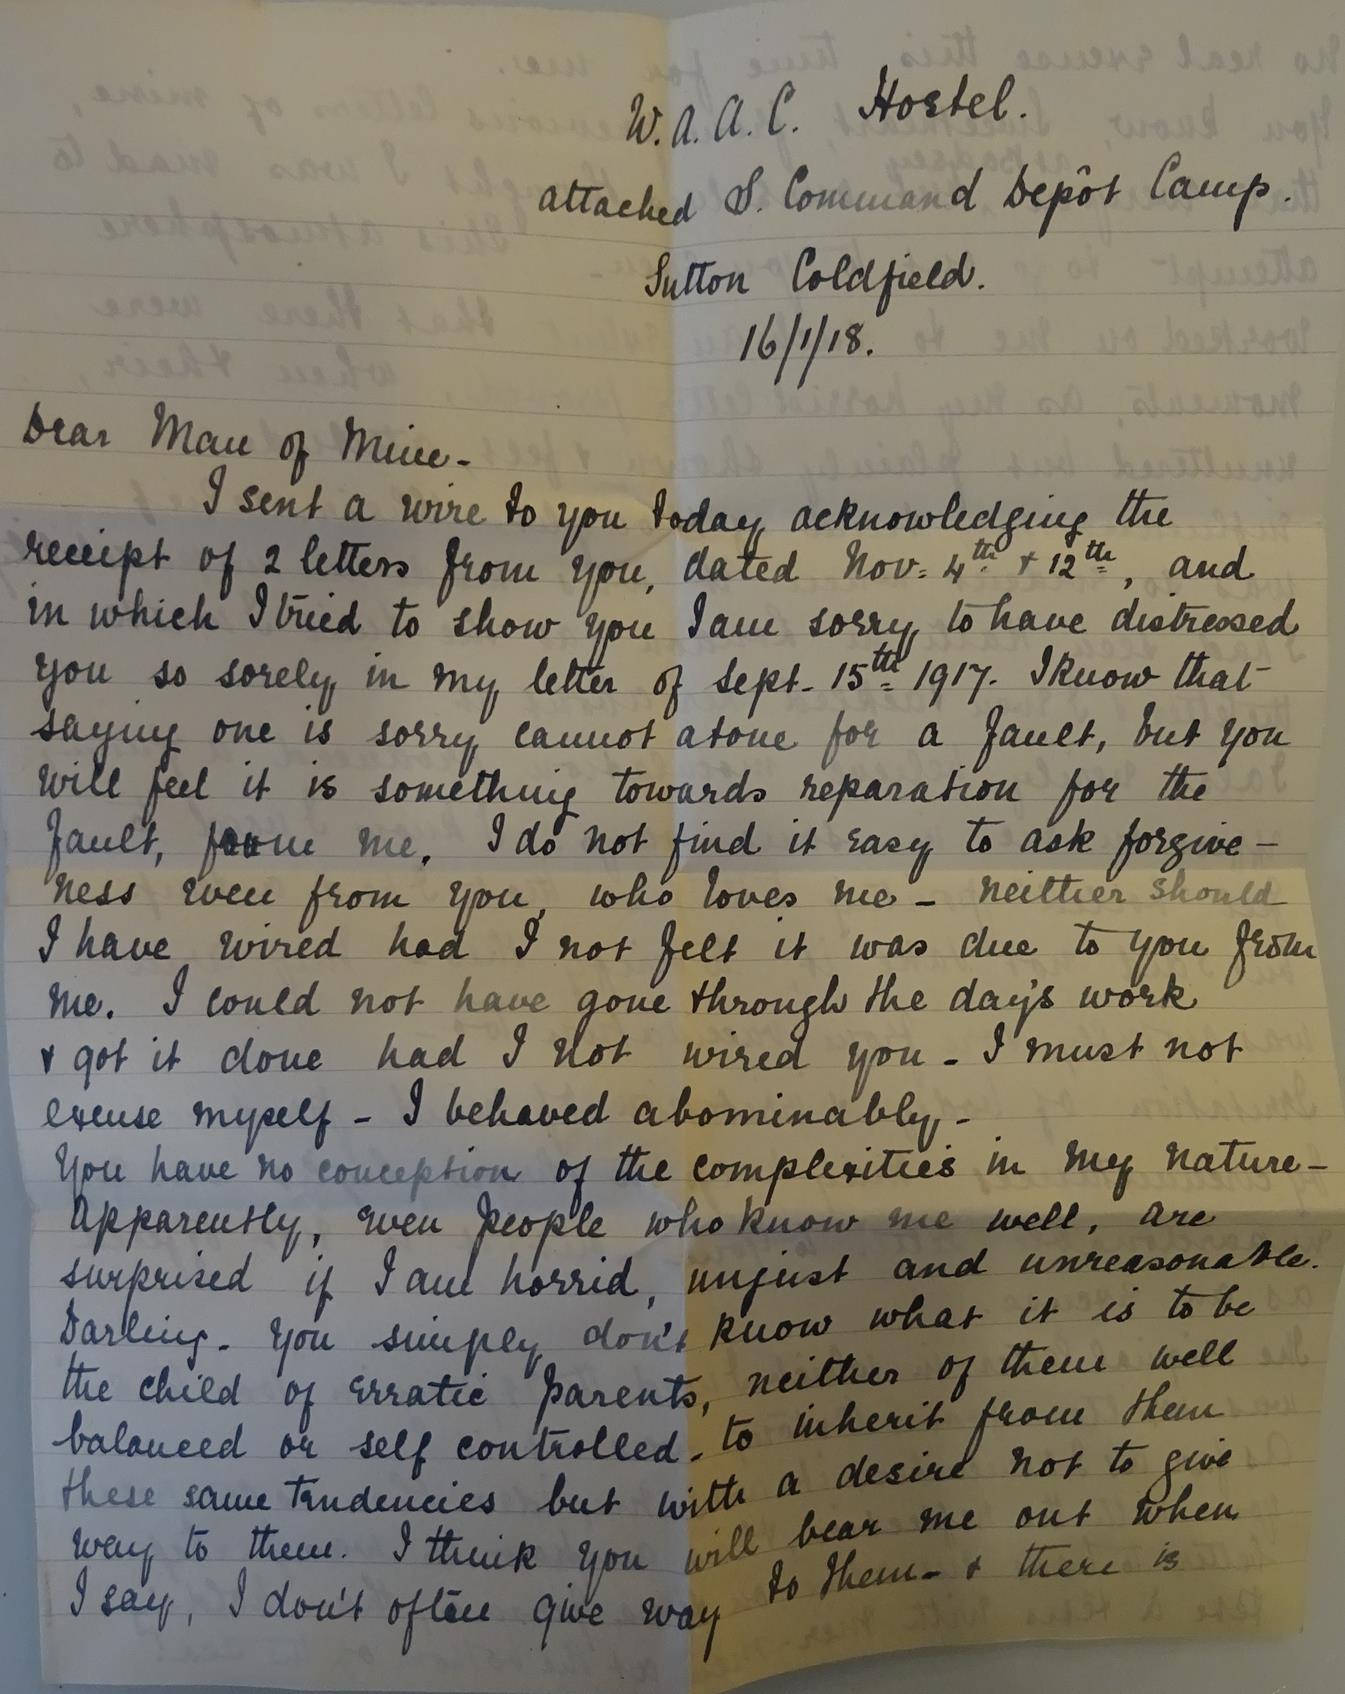 W.A.A.C. Hostel.
attached S. Command Depôt Camp.
Sutton Coldfield.
16/1/18.
Dear Man of Mine -
I sent a wire to you today acknowledging the
receipt of 2 letters from you, dated Nov: 4th & 12th, and
in which I tried to show you I am sorry to have distressed
you so sorely in my letter of Sept. 15th 1917. I know that
saying one is sorry cannot atone for a fault, but you
will feel it is something towards reparation for the
fault, from me. I do not find it easy to ask forgive-
ness even from you, who loves me - neither should
I have wired had I not felt it was due to you from
me. I could not have gone through the day's work
& got it done had I not wired you - I must not
excuse myself - I behaved abominably -
You have no conception of the complexities in my nature -
Apparently, even people who know me well, are
surprised if I am horrid, unjust and unreasonable.
Darling - you simply don't know what it is to be
the child of erratic parents, neither of them well
balanced or self controlled - to inherit from them
these same tendencies but with a desire not to give
way to them. I think you will bear me out when
I say, I don't often give way to them - & there is